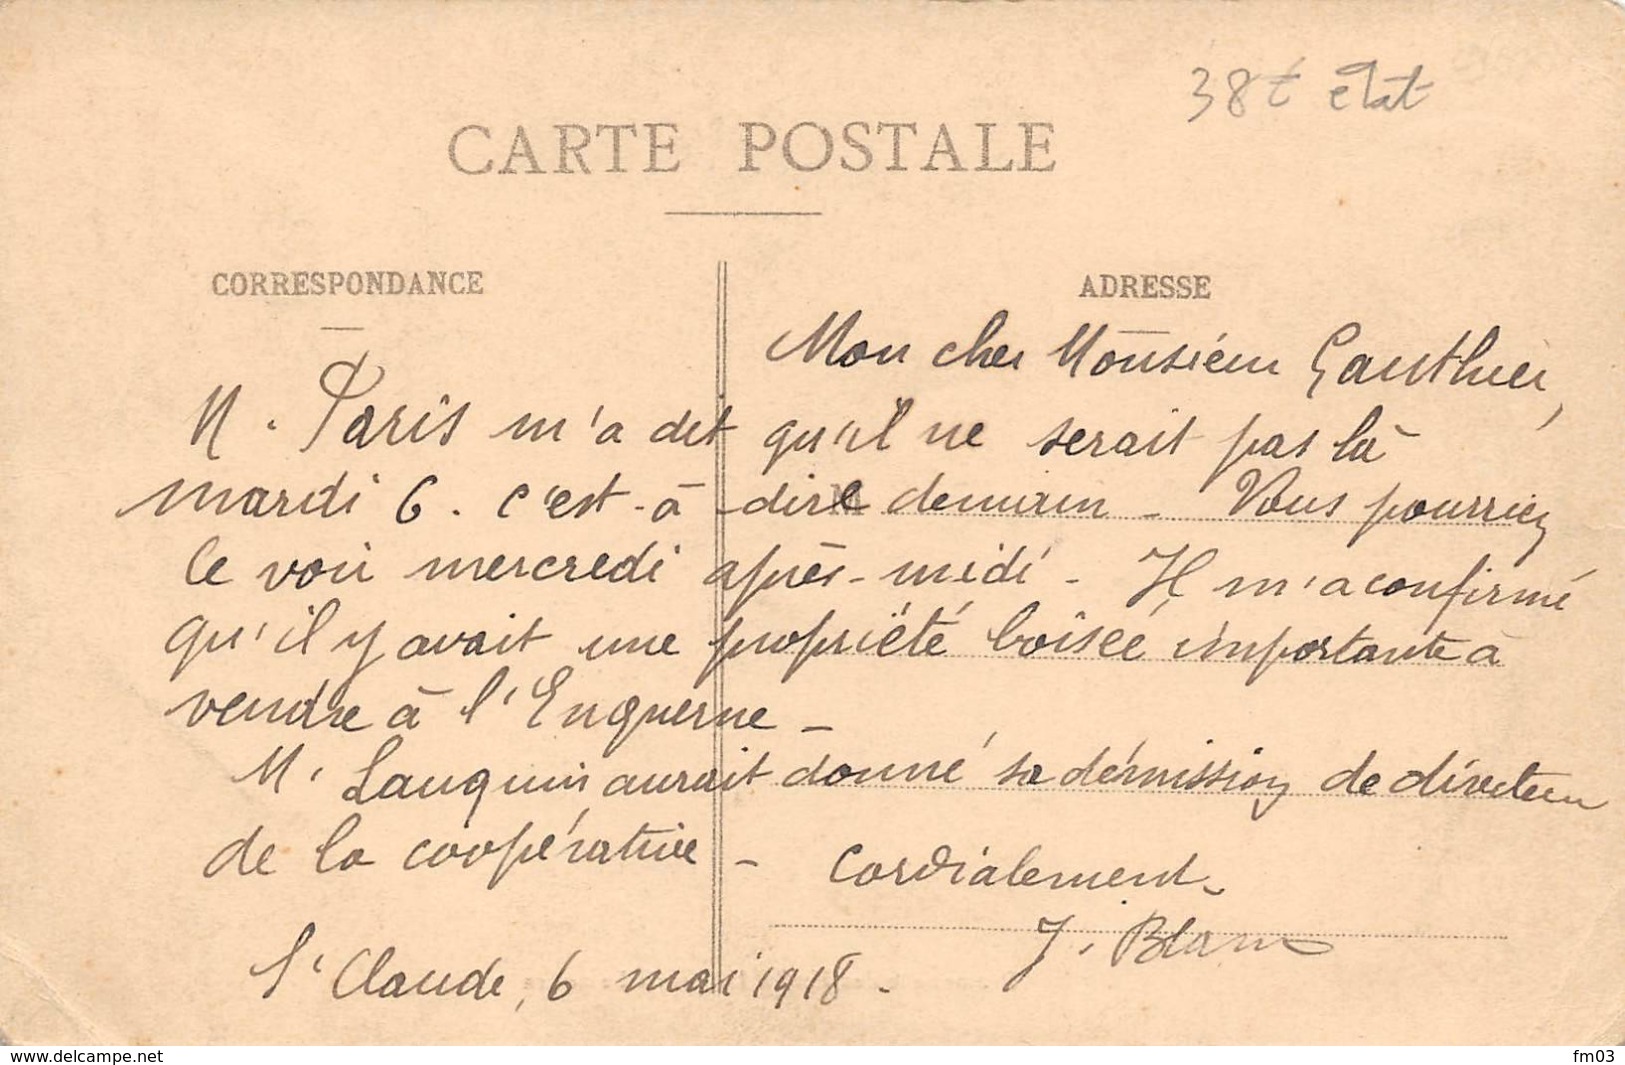 38t état
CARTE POSTALE
CORRESPONDANCE
ADRESSE
Mon cher Monsieur Gauthier,
M. Paris m'a dit qu'il ne serait pas là
mardi 6. c'est-à-dire demain - Vous pourriez
le voir mercredi après-midi - Il m'a confirmé
qu'il y avait une propriété boisée importante à
vendre à l'Enquerne -
M. Lauquin aurait donné sa démission de directeur
de la coopérative -
Cordialement.
J. Blanc
St Claude, 6 mai 1918.
www.delcampe.net
fm03